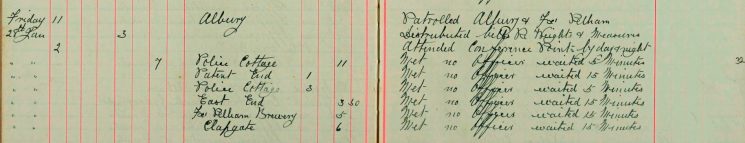 Friday 11 Albury Patrolled Albury & Fx Pelham
28th Jan 3 Distributed Weights & Measures
2 Attended Conference Points by day & night
" " 7 Police Cottage 11 Met no Officer waited 5 Minutes
" " Patent End 1 Met no Officer waited 15 Minutes
" " Police Cottage 3 Met no Officer waited 5 Minutes
" " East End 3 30 Met no Officer waited 15 Minutes
" " Fx Pelham Brewery 5 Met no Officer waited 15 Minutes
" " Clapgate 6 Met no Officer waited 15 Minutes